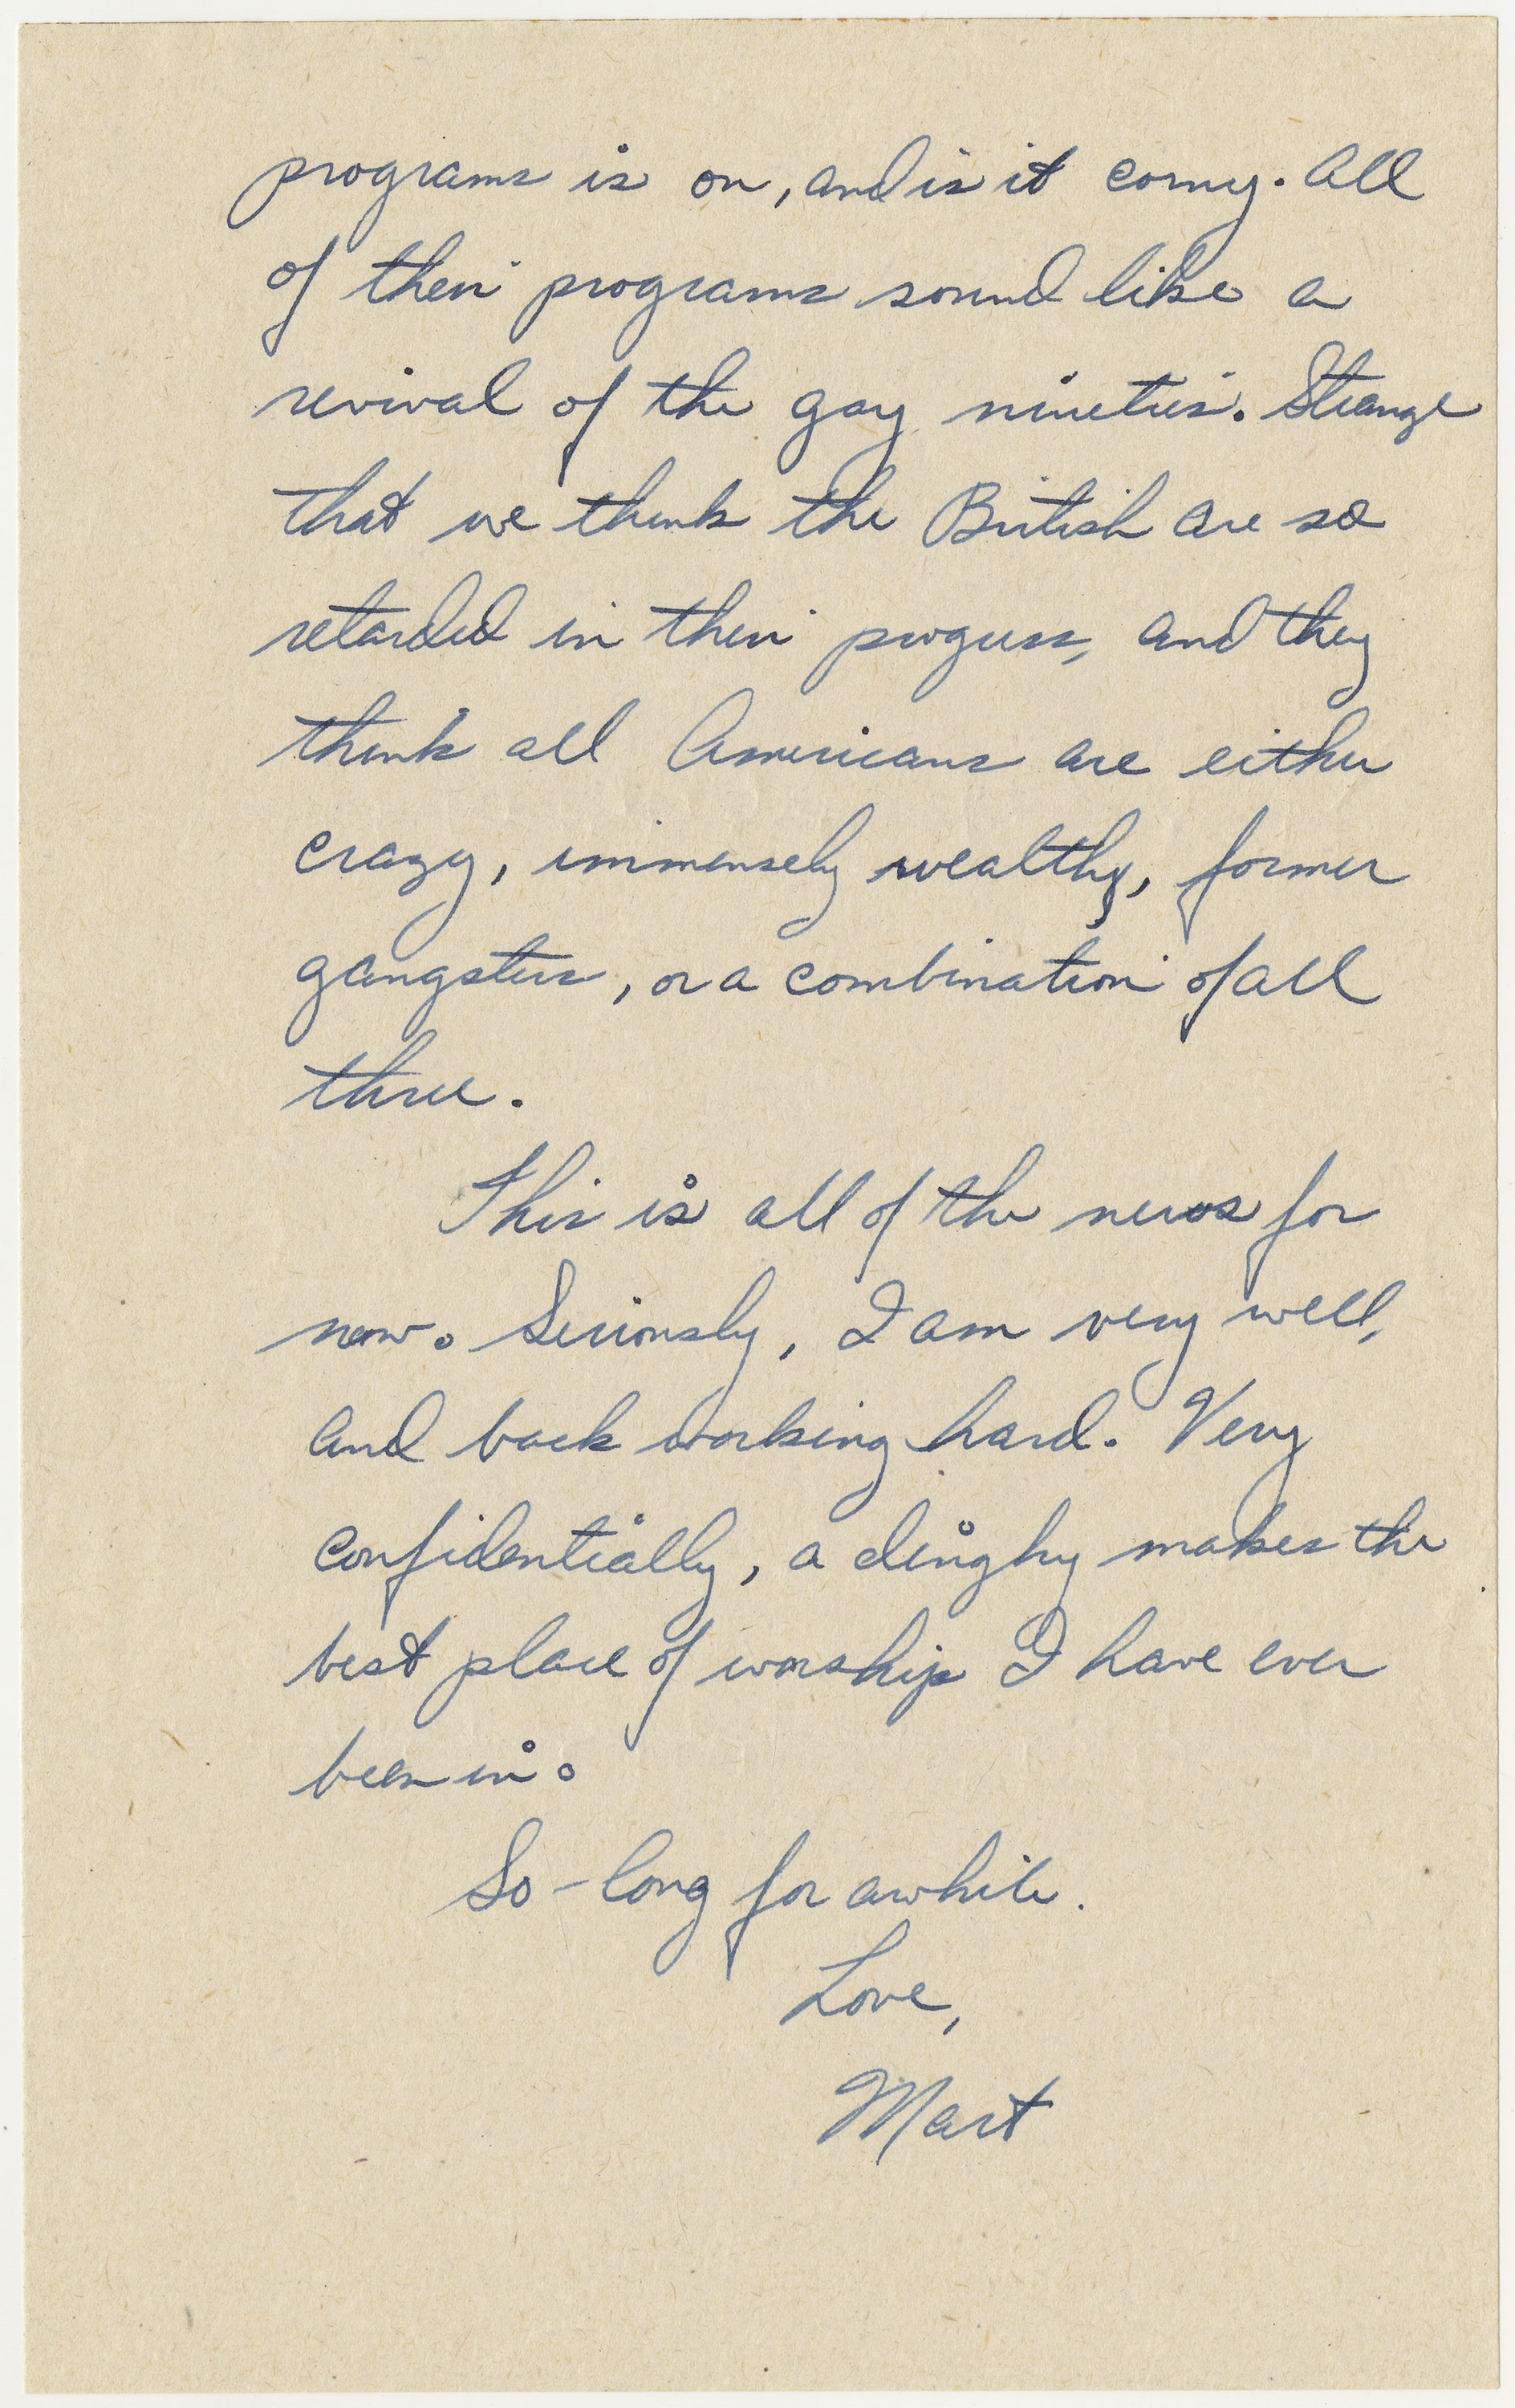 programs is on, and is it corny. All
of their programs sound like a
revival of the gay nineties. Strange
that we think the British are so
retarded in their progress, and they
think all Americans are either
crazy, immensely wealthy, former
gangsters, or a combination of all
three.
This is all of the news for
now. Seriously, I am very well,
and back working hard. Very
confidentially, a dinghy makes the
best place of worship I have ever
been in.
So-long for awhile.
Love,
Mart